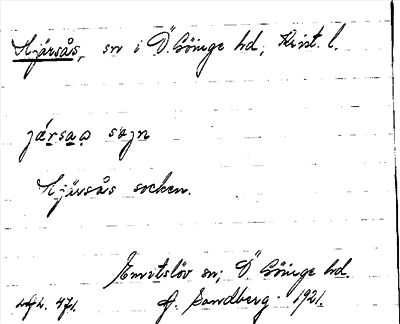 Hjärsås, sn i Ö. Göinge hd, Krist. l.
järsas sojn
Hjärsås socken.
Emitslöv sn, Ö. Göinge hd.
471. A. Sandberg. 1921.